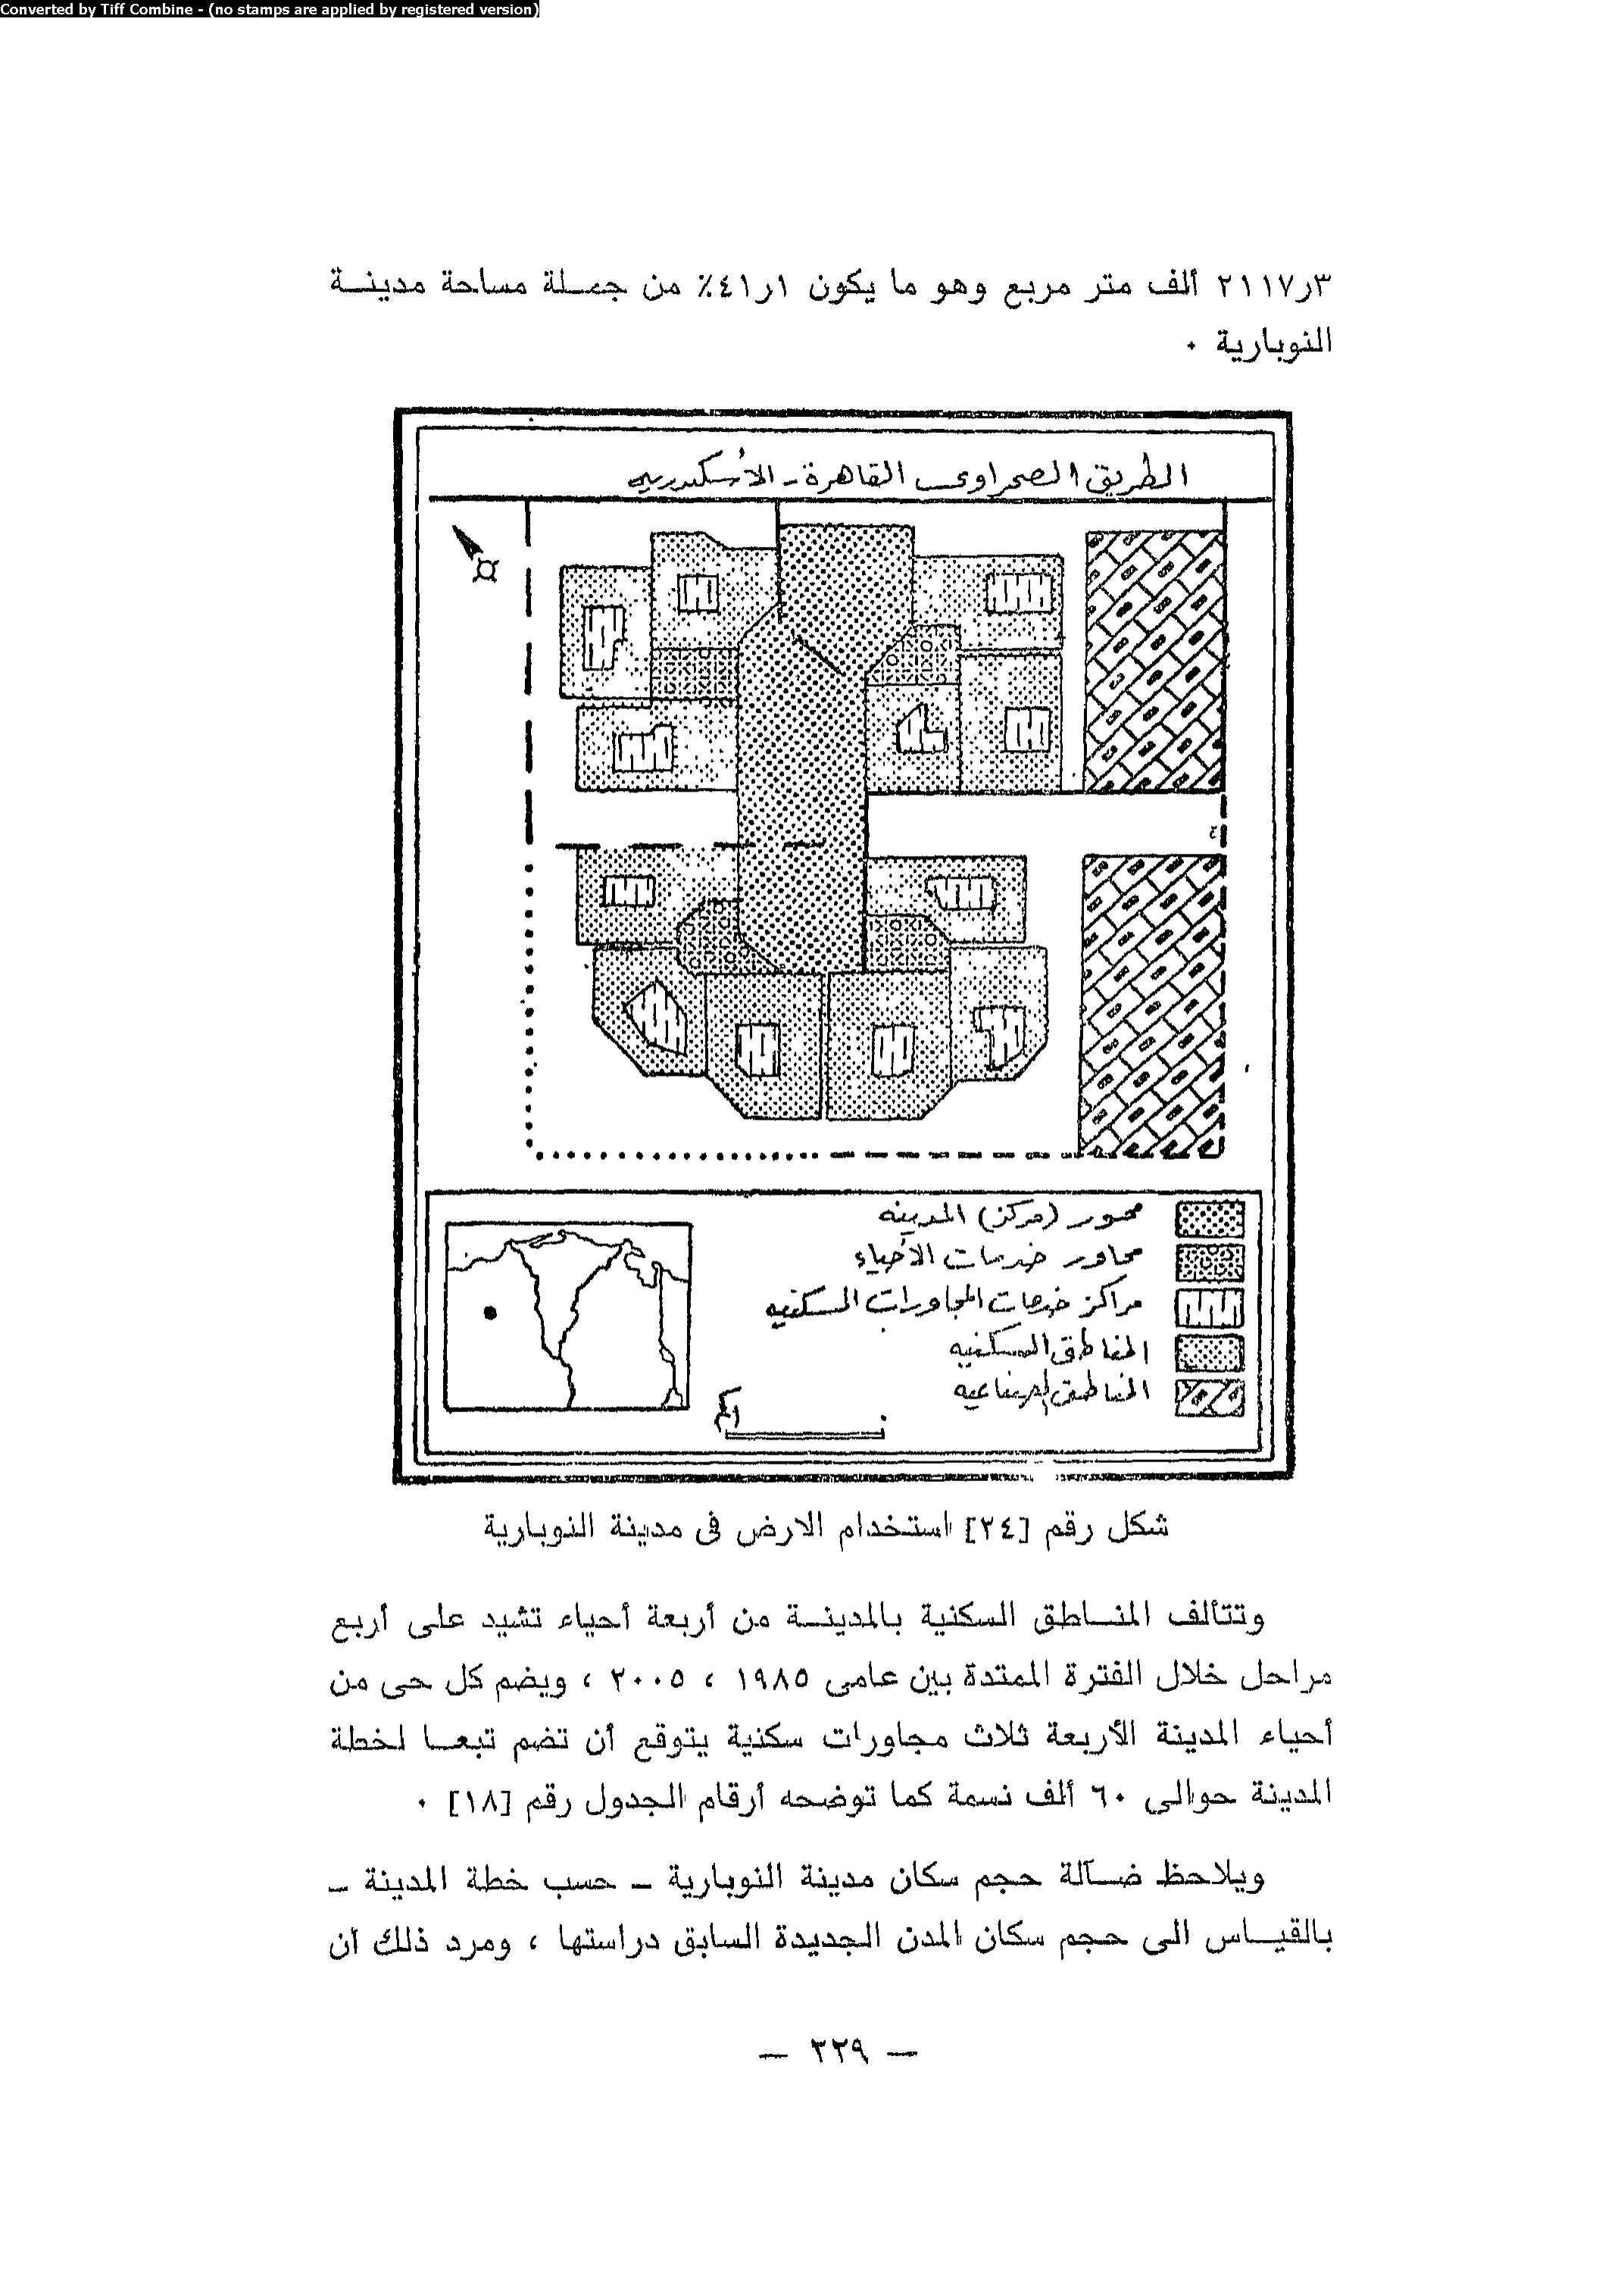 Converted by Tiff Combine - (no stamps are applied by registered version)
٢١١٧٫٣ ألف متر مربع وهو ما يكون ٤١٫١٪ من جملة مساحة مدينة
النوبارية ٠
الطريق الصحراوى القاهرة - الأسكندريه
محور (مركز) المدينه
محاور خدمات الأحياء
مراكز خدمات المجاورات السكنيه
المناطق السكنيه
المناطق الصناعيه
١كم
٠
شكل رقم [٢٤] استخدام الارض فى مدينة النوبارية
وتتألف المناطق السكنية بالمدينة من أربعة أحياء تشيد على أربع
مراحل خلال الفترة الممتدة بين عامى ١٩٨٥ ، ٢٠٠٥ ، ويضم كل حى من
أحياء المدينة الأربعة ثلاث مجاورات سكنية يتوقع أن تضم تبعا لخطة
المدينة حوالى ٦٠ ألف نسمة كما توضحه أرقام الجدول رقم [١٨] ٠
ويلاحظ ضآلة حجم سكان مدينة النوبارية – حسب خطة المدينة –
بالقياس الى حجم سكان المدن الجديدة السابق دراستها ، ومرد ذلك أن
— ٢٢٩ —